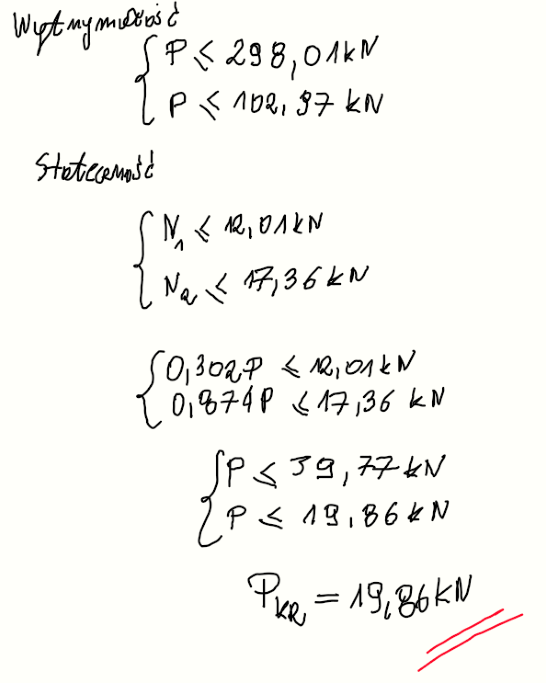 Wytrzymałość
P ≤ 298,01kN
P ≤ 102,97 kN
Stateczność
N₁ ≤ 12,01kN
N₂ ≤ 17,36kN
0,302P ≤ 12,01kN
0,874P ≤ 17,36 kN
P ≤ 39,77kN
P ≤ 19,86kN
P_KR, = 19,86kN